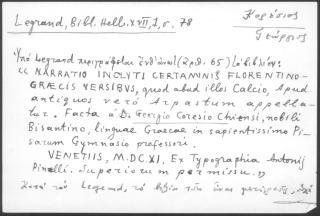 Legrand, Bibl. Hell. XVII, I, σ. 78
Κορέσσιος
Γεώργιος
Ὑπὸ Legrand περιγράφεται ἐνθ' ἀνωτ. (ἀρθ. 65) τὸ βιβλίον:
« NARRATIO INCLYTI CERTAMINIS FLORENTINO-
GRÆCIS VERSIBUS, quod apud illos Calcio, apud
antiquos vero Arpastum appella-
tur. Facta à D. Georgio Coresio Chiensi, nobili
Bisantino, linguae Graecae in sapientissimo Pi-
sarum Gymnasio professori.
VENETIIS, M.DC.XI. Ex Typographia Antonij
Pinelli. Superiorum permissu. »
Κατὰ τὸν Legrand, τὸ